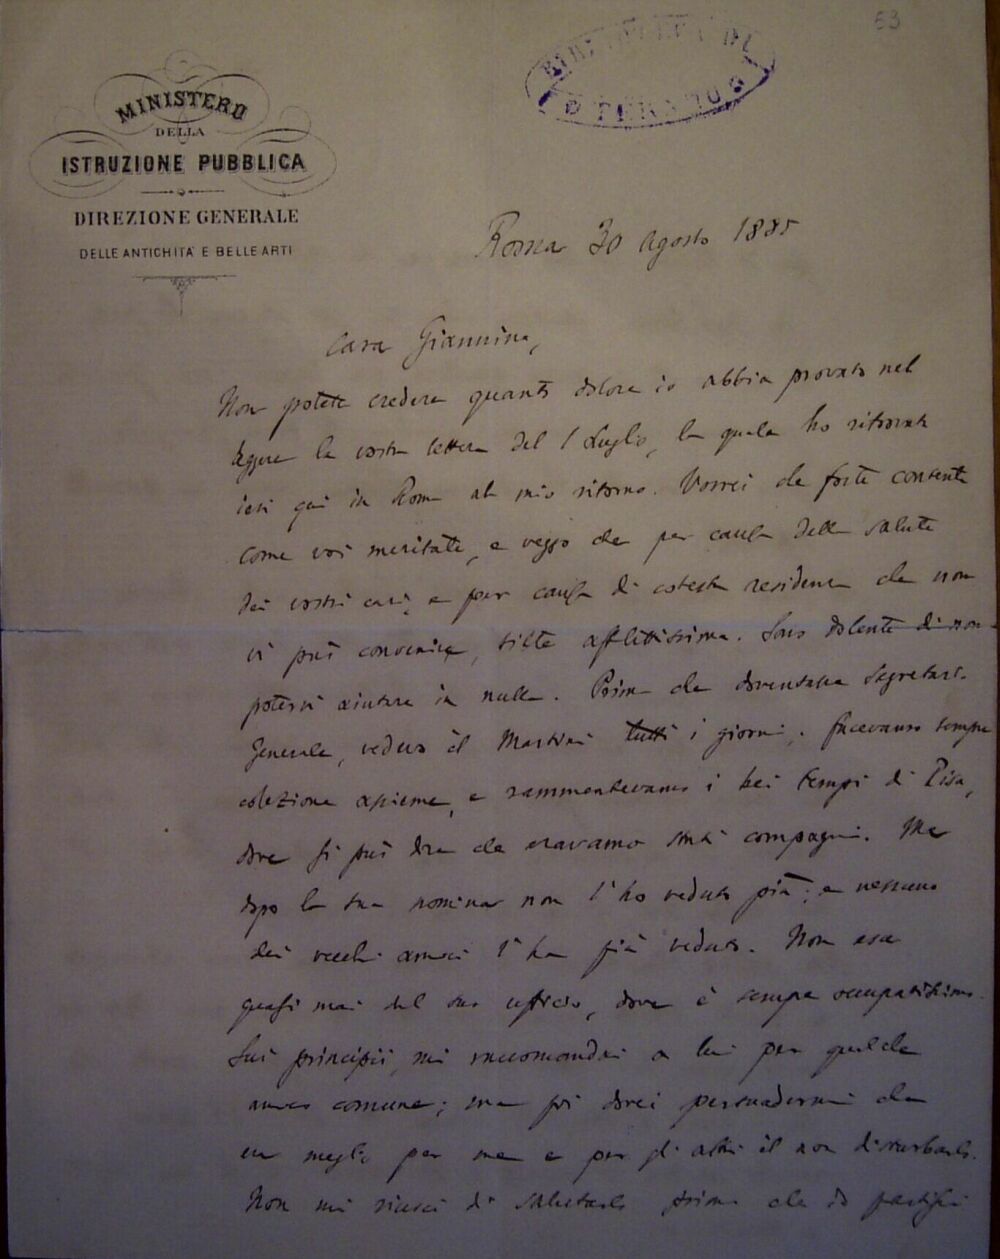 63
BIBLIOTECA DI
TERAMO
MINISTERO
DELLA
ISTRUZIONE PUBBLICA
DIREZIONE GENERALE
DELLE ANTICHITA' E BELLE ARTI
Roma 30 Agosto 1885
Cara Giannina,
Non potete credere quanto dolore io abbia provato nel
leggere la vostra lettera del 1 Luglio, la quale ho ritrovata
ieri qui in Roma al mio ritorno. Vorrei che foste contenta
come voi meritate, e veggo che per causa della salute
dei vostri cari, e per causa di cotesta residenza che non
vi può convenire, siete afflittissima. Sono dolente di non
potervi aiutare in nulla. Prima che diventasse Segretario
Generale, vedevo il Martini tutti i giorni. Facevamo sempre
colezione assieme, e rammentavamo i bei tempi di Pisa,
dove si può dire che eravamo stati compagni. Ma
dopo la sua nomina non l'ho veduto più; e nessuno
dei vecchi amici l'ha più veduto. Non esce
quasi mai dal suo ufficio, dove è sempre occupatissimo.
Sui principii, mi raccomandai a lui per qualche
amico comune; ma poi dovei persuadermi che
era meglio per me e per gli altri il non disturbarlo.
Non mi riuscì di salutarlo prima che io partissi